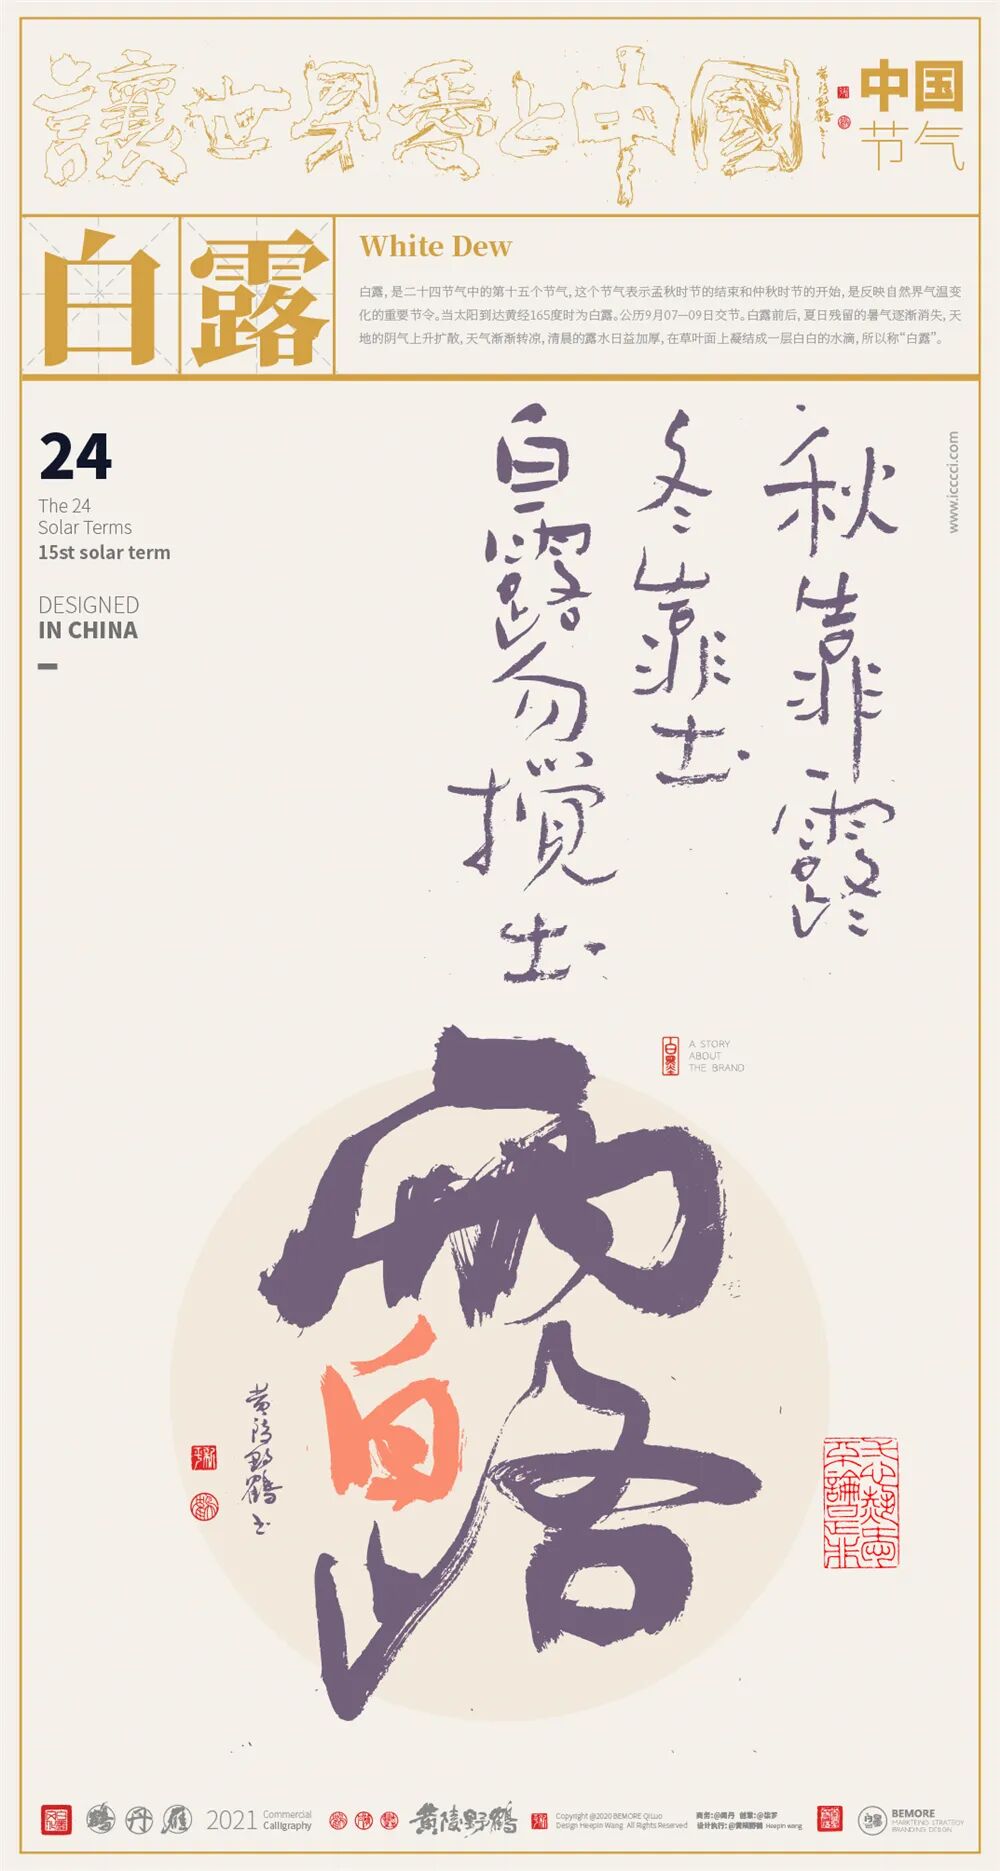 讓世界愛上中國
黄陵野鹤书
中国
节气
白露
White Dew
白露，是二十四节气中的第十五个节气，这个节气表示孟秋时节的结束和仲秋时节的开始，是反映自然界气温变
化的重要节令。当太阳到达黄经165度时为白露。公历9月07—09日交节。白露前后，夏日残留的暑气逐渐消失，天
地的阴气上升扩散，天气渐渐转凉，清晨的露水日益加厚，在草叶面上凝结成一层白白的水滴，所以称“白露”。
24
The 24
Solar Terms
15st solar term
DESIGNED
IN CHINA
www.icccci.com
秋靠露
冬靠土
白露勿搅土
A STORY
ABOUT
THE BRAND
露
白
黄陵野鹤书
鹤丹雁
2021
Commercial
Calligraphy
黄陵野鹤
Copyright @2020 BEMORE QiLuo
Design Heepin Wang. All Rights Reserved
设计执行：@黄陵野鹤 Heepin wang
BEMORE
MARKTEING STRATEGY
BRANDING DESIGN